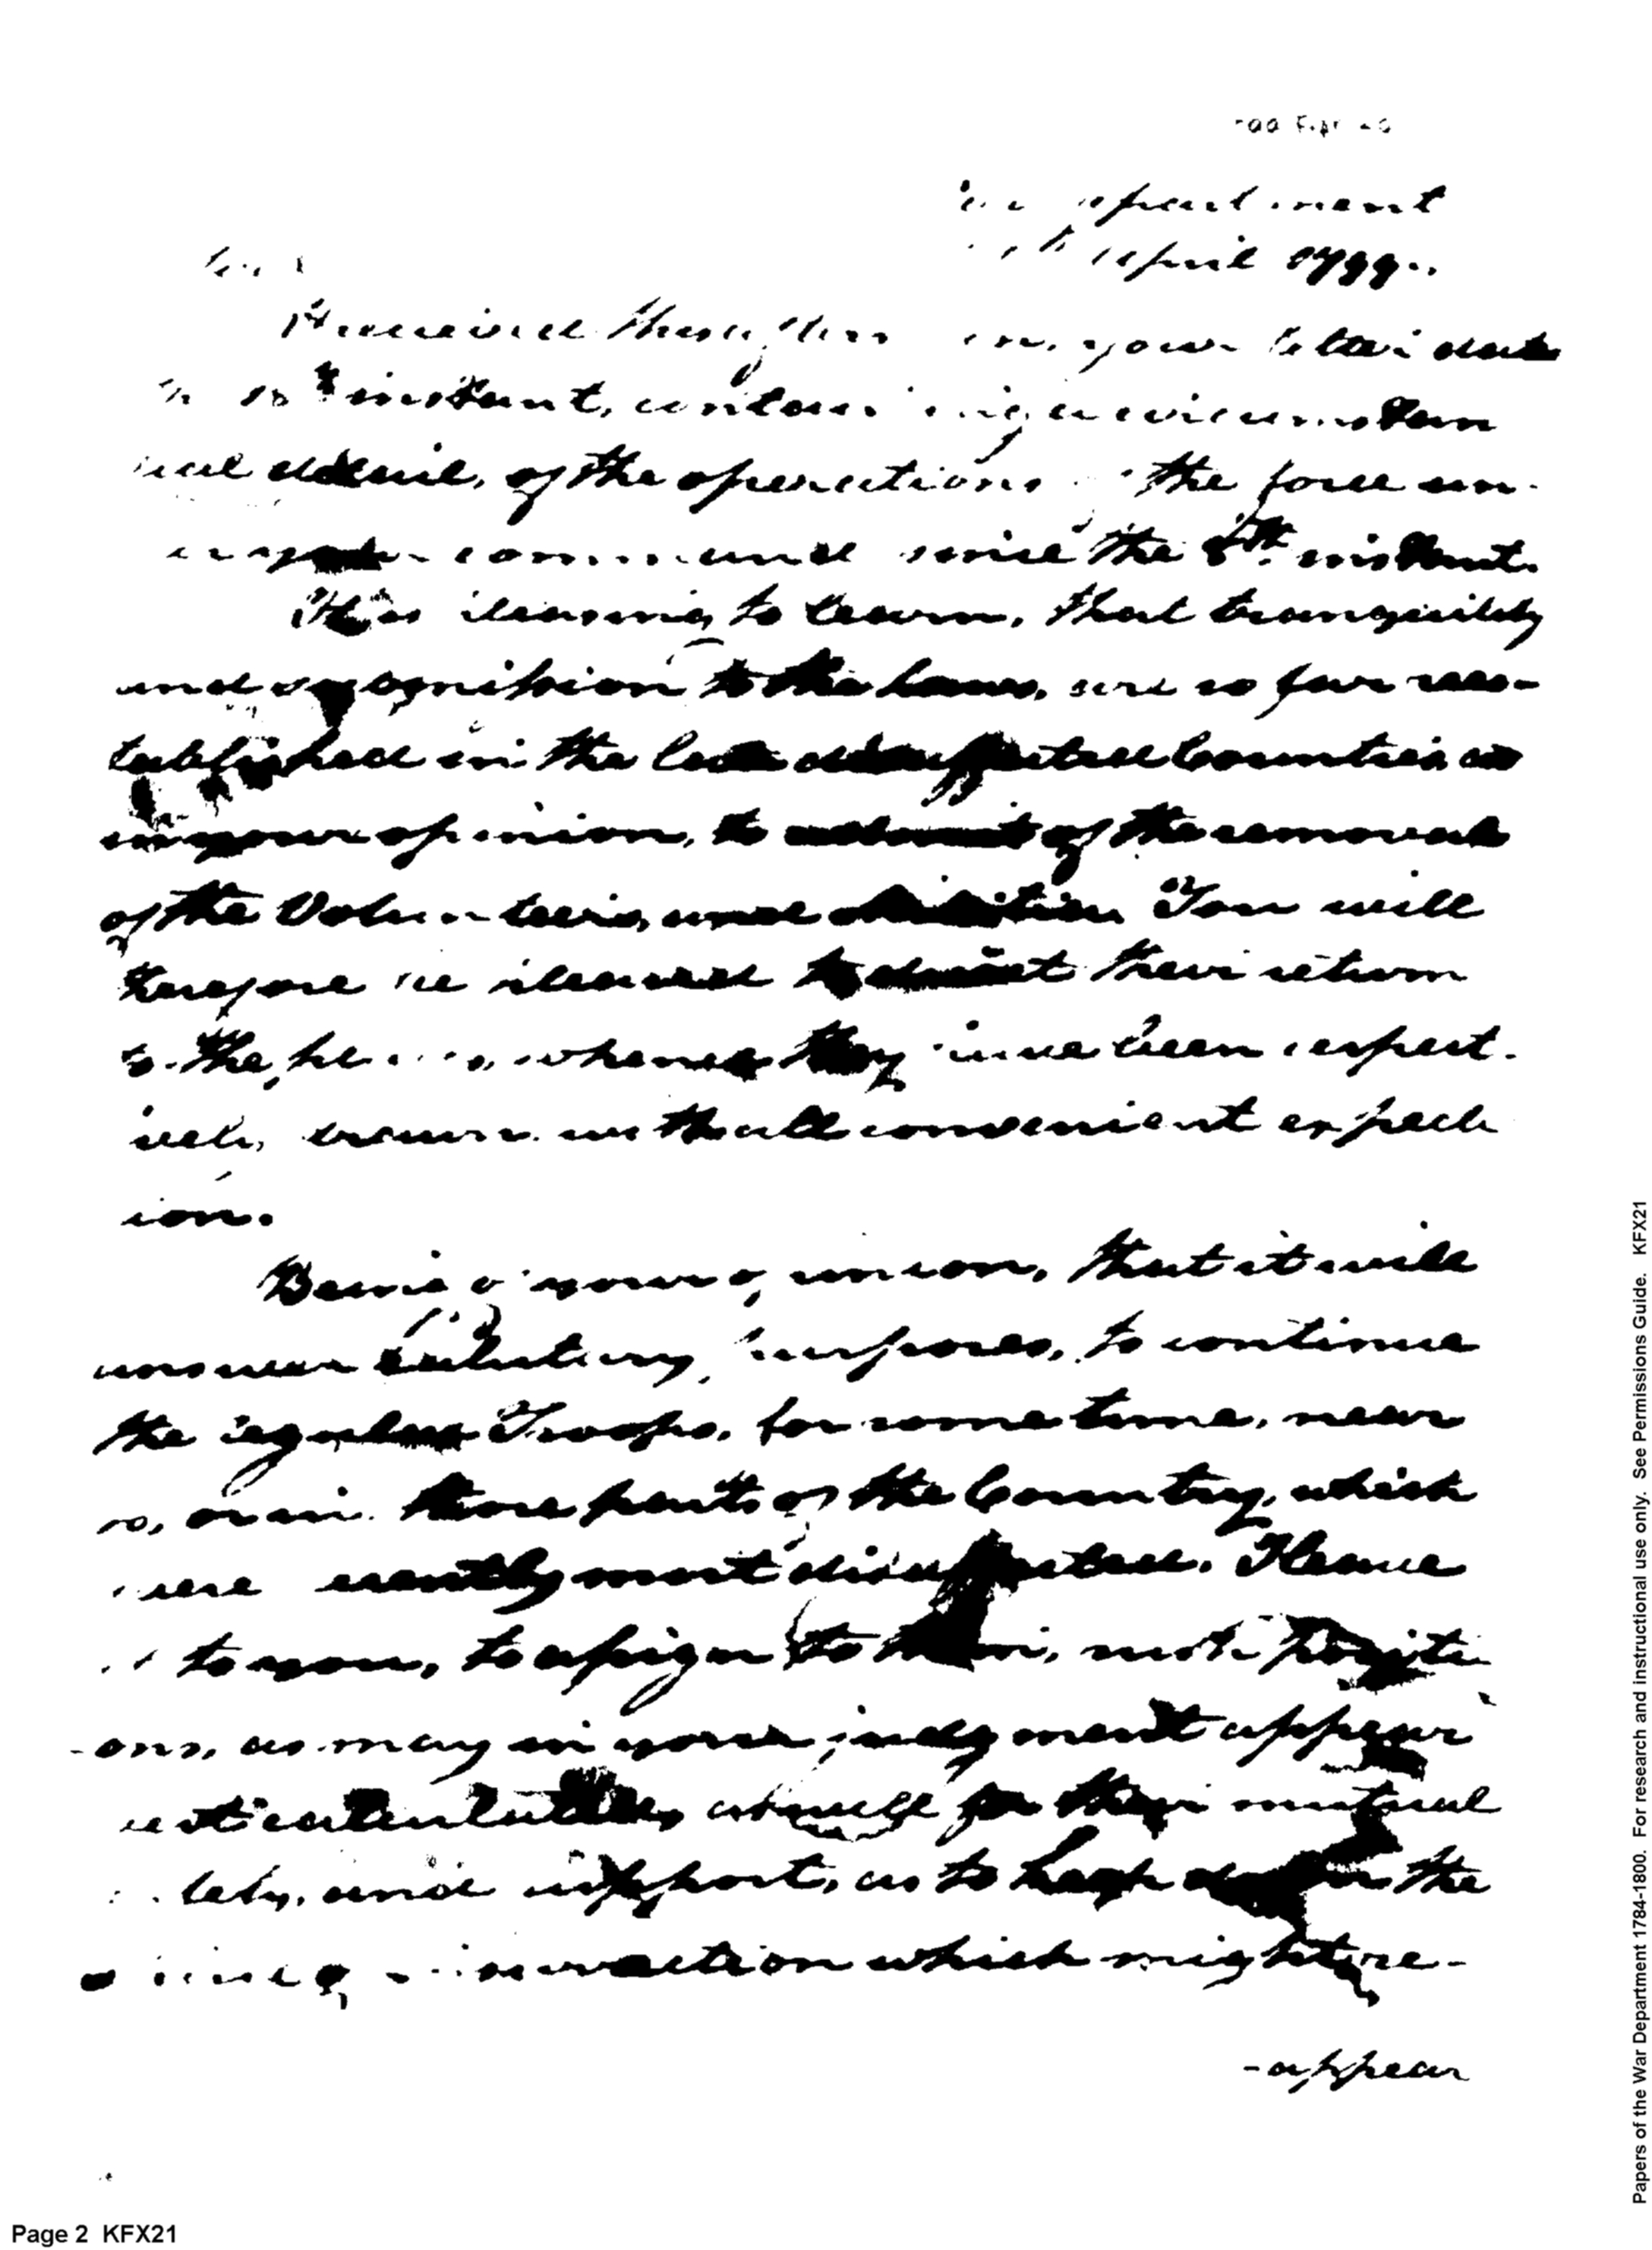 Department
April 1799
Sir
I received this morning your letter dated
the instant, containing a circumstan
tial detail, of the operations of the force un-
der your command since the 8th instant.
It is pleasing to learn, that tranquility
and to the laws, are so far rees-
tablished in the late disaffected Counties as
in your opinion, to admit of the removal
of the Volunteers, and Militia. You will
therefore be pleased to direct their return
to the places, whence they have been respect-
ively drawn with all convenient expedi
ion.
Being of your opinion, that it will
answer salutary purposes, to continue
the regular Troops, for some time, near
to, or in those parts of the Country, which
were recently most disaffected. I leave
it to you, to assign to them, such positi
-ons, as may in your judgment appear
best calculated, as well for their mutual
safety, and support, as to keep down the
spirit of insurrection which might re-
-appear
Page 2 KFX21
Papers of the War Department 1784-1800. For research and instructional use only. See Permissions Guide. KFX21